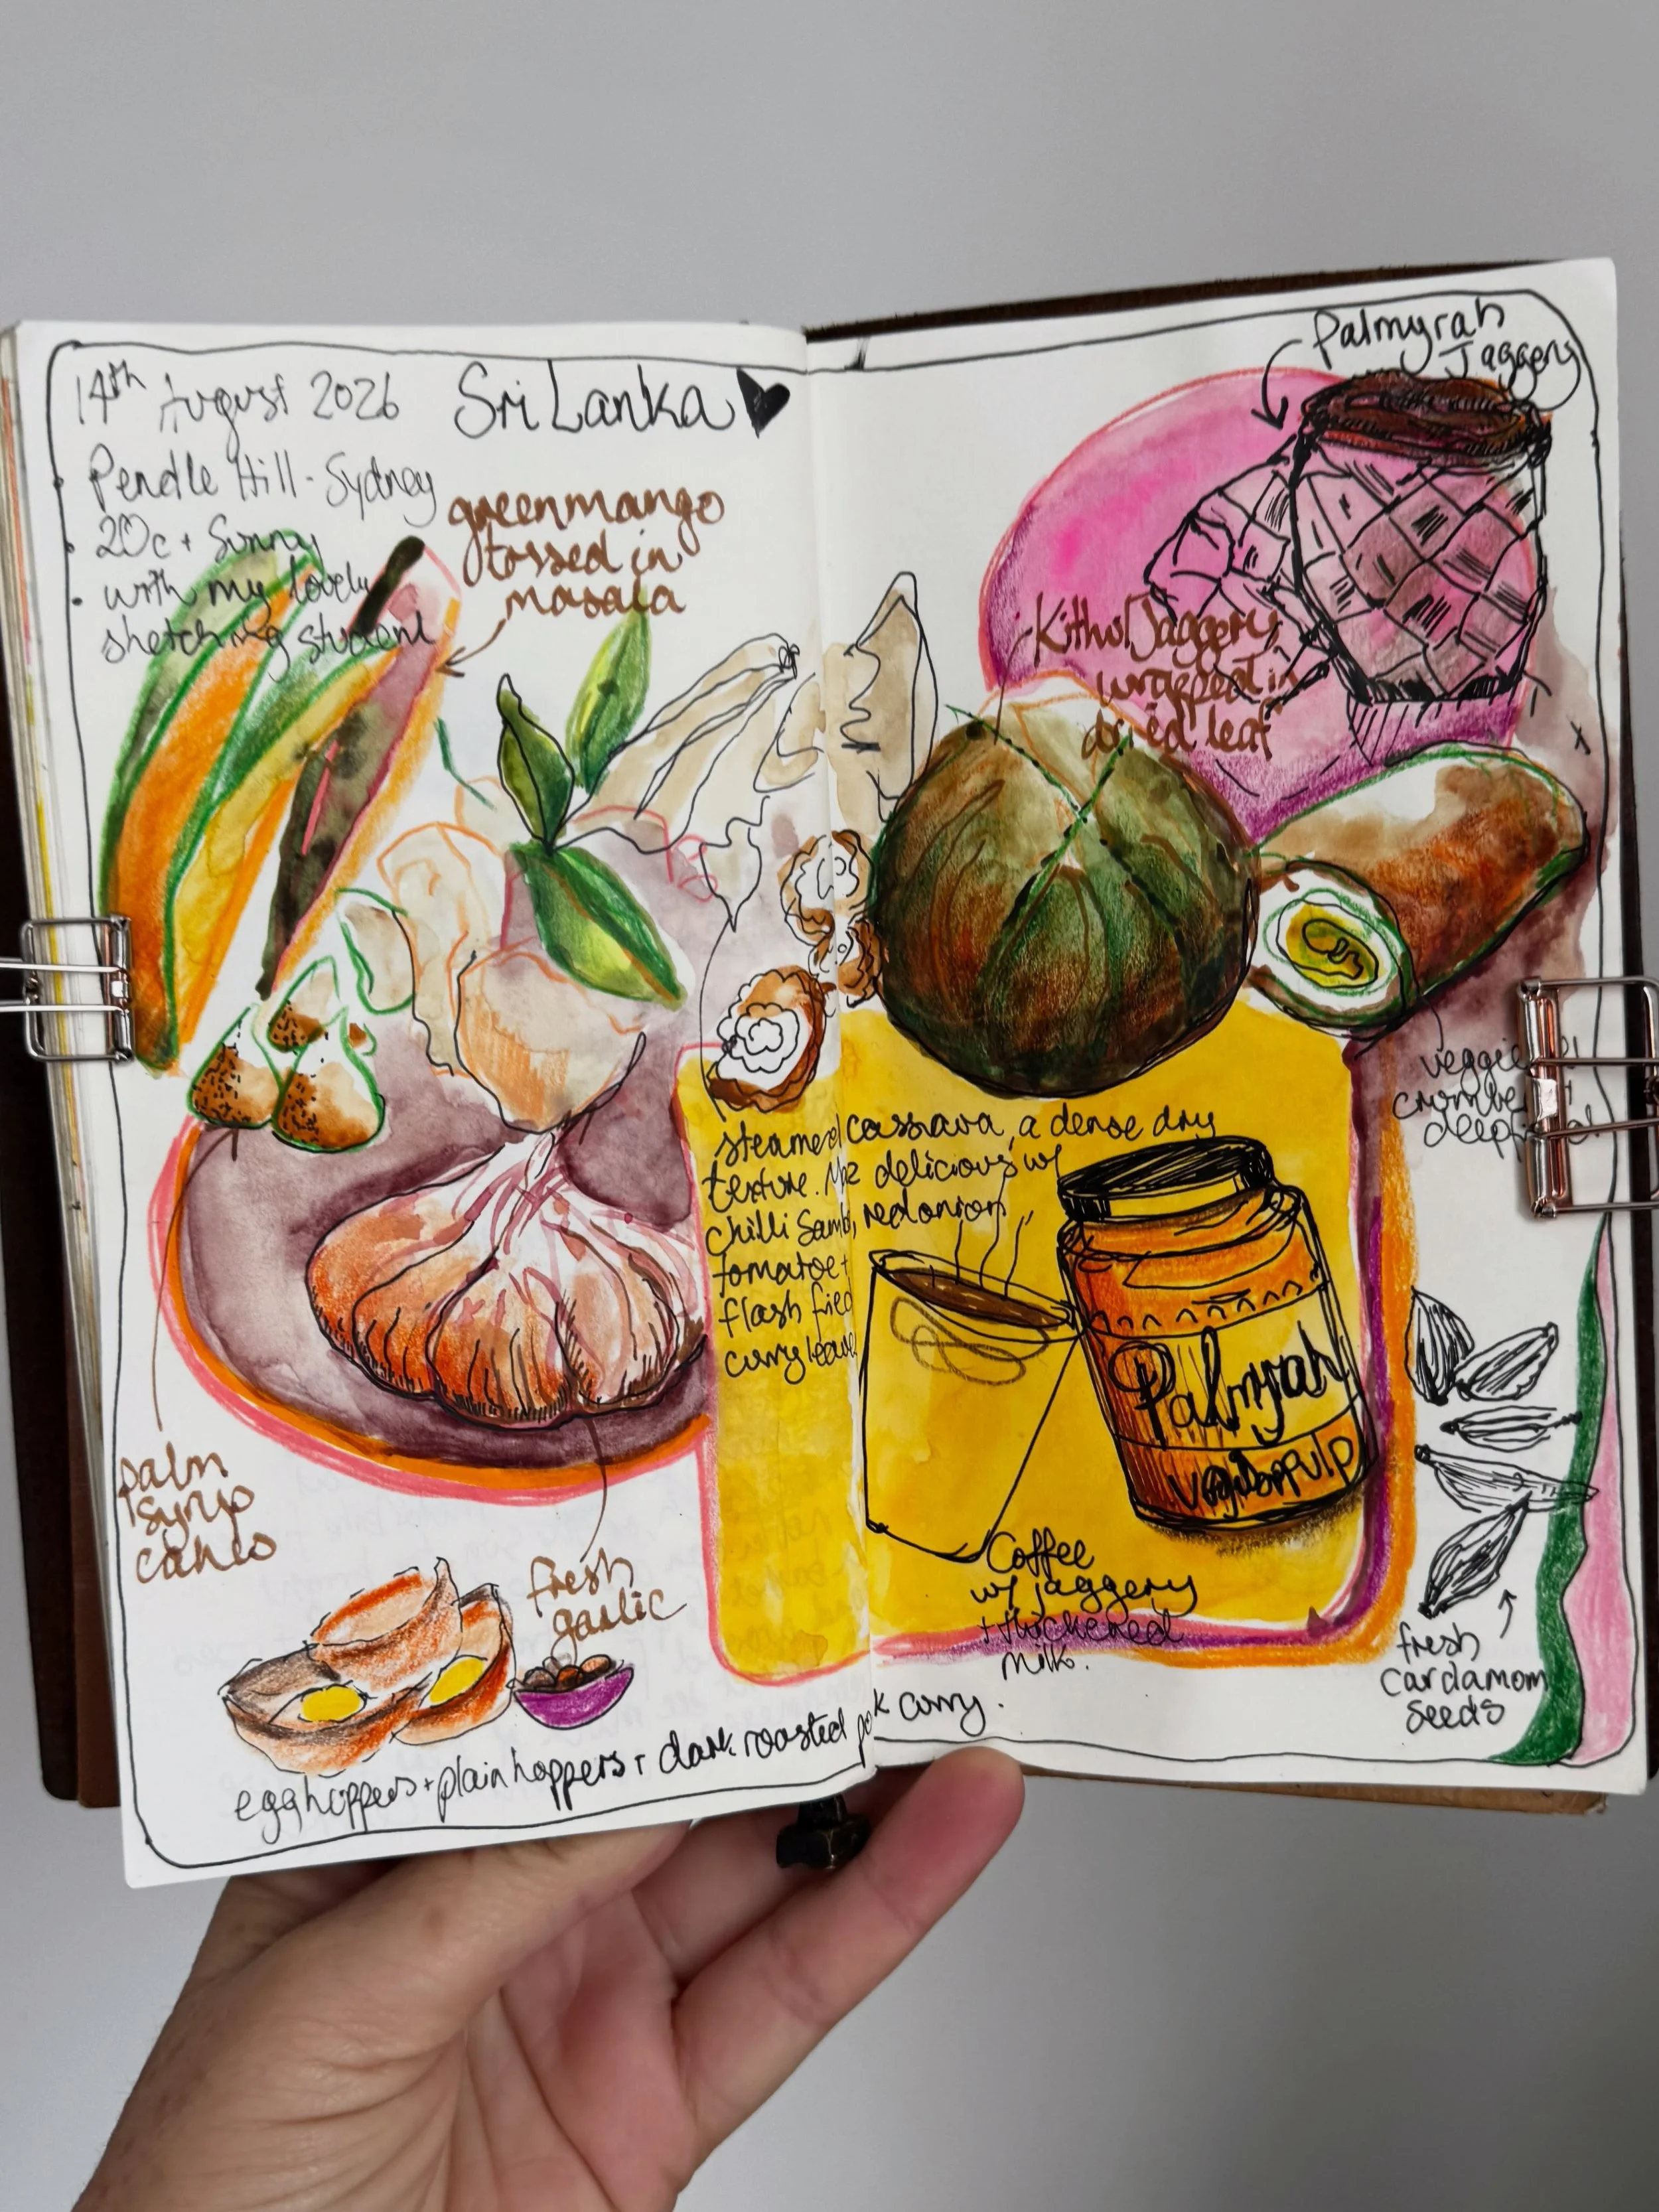 14th August 2026
Sri Lanka
Pendle Hill - Sydney
20c + Sunny
with my lovely
sketching student
green mango
tossed in
masala
Palmyrah
Jaggery
Kithul Jaggery
wrapped in
dried leaf
veggie
crumbe
deep
steamed cassava, a dense dry
texture. delicious w/
chilli Samb, red onion
tomatoe +
flash fried
curry leave
Palmyrah
pulp
Coffee
w/ jaggery
+ thickened
milk.
palm
syrup
cakes
fresh
garlic
fresh
cardamom
seeds
egg hoppers + plain hoppers + dark roasted pork curry.